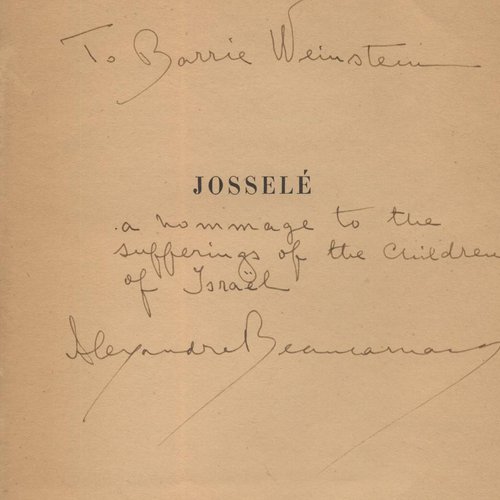 To Barrie Weinstein
JOSSELÉ
a hommage to the
sufferings of the children
of Israël
Alexandre